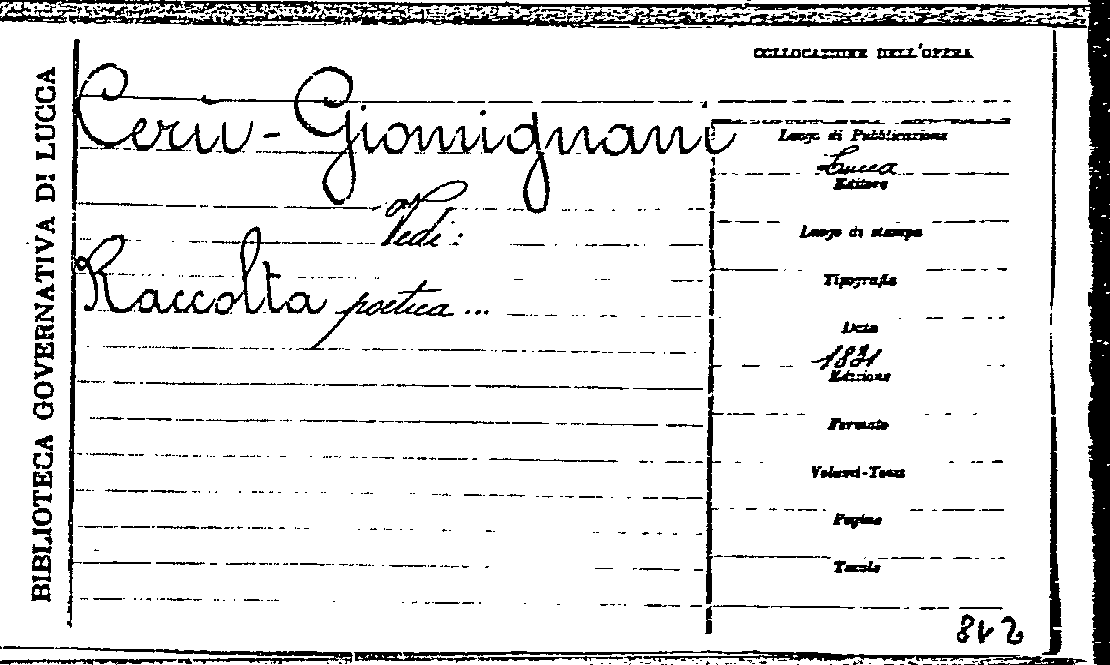 BIBLIOTECA GOVERNATIVA DI LUCCA
COLLOCAZIONE DELL'OPERA
Cerù-Giomignani
Vedi:
Raccolta poetica...
Luogo di Pubblicazione
Lucca
Editore
Luogo di stampa
Tipografia
Data
1831
Edizione
Formato
Volumi-Tomi
Pagine
Tavole